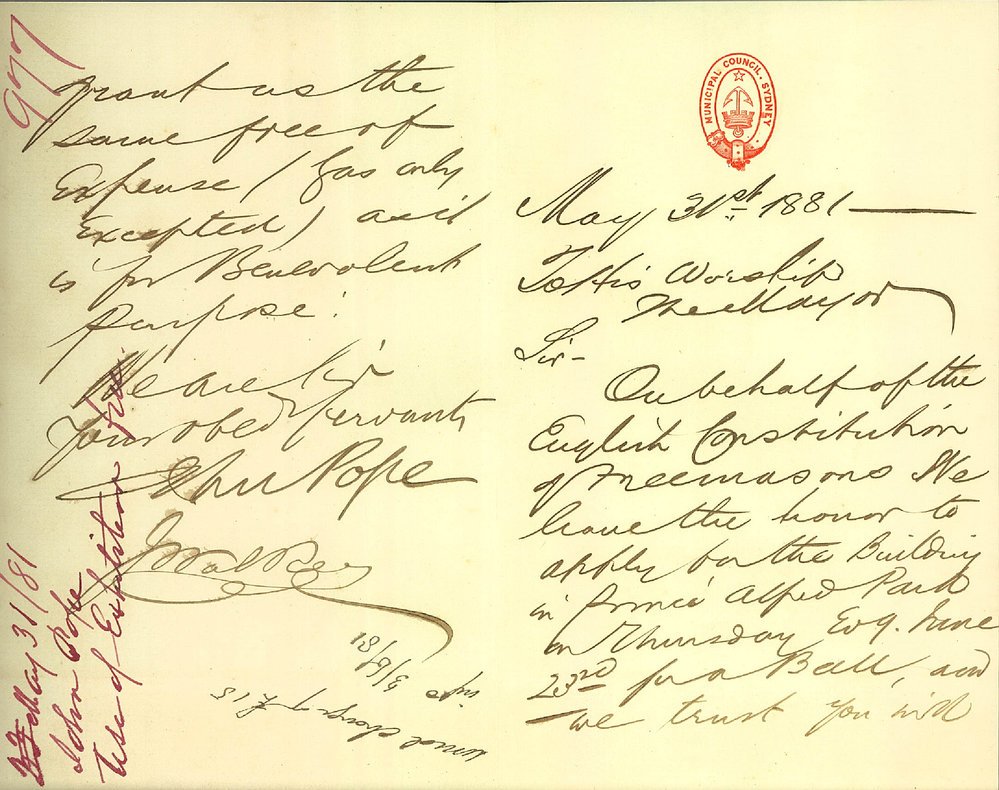 MUNICIPAL COUNCIL · SYDNEY
May 31st 1881
To His Worship
The Mayor
Sir -
On behalf of the
English Constitution
of Freemasons We
have the honor to
apply for the Building
in Prince Alfred Park
on Thursday Evg. June
23rd for a Ball, and
we trust you will
grant us the
same free of
Expense (Gas only
Excepted) as it
is for Benevolent
purpose.
We are Sir
Your obed Servants
John Pope
977
May 31/81
John Pope
Use of Exhibition
usual charge of £15
3/6/81